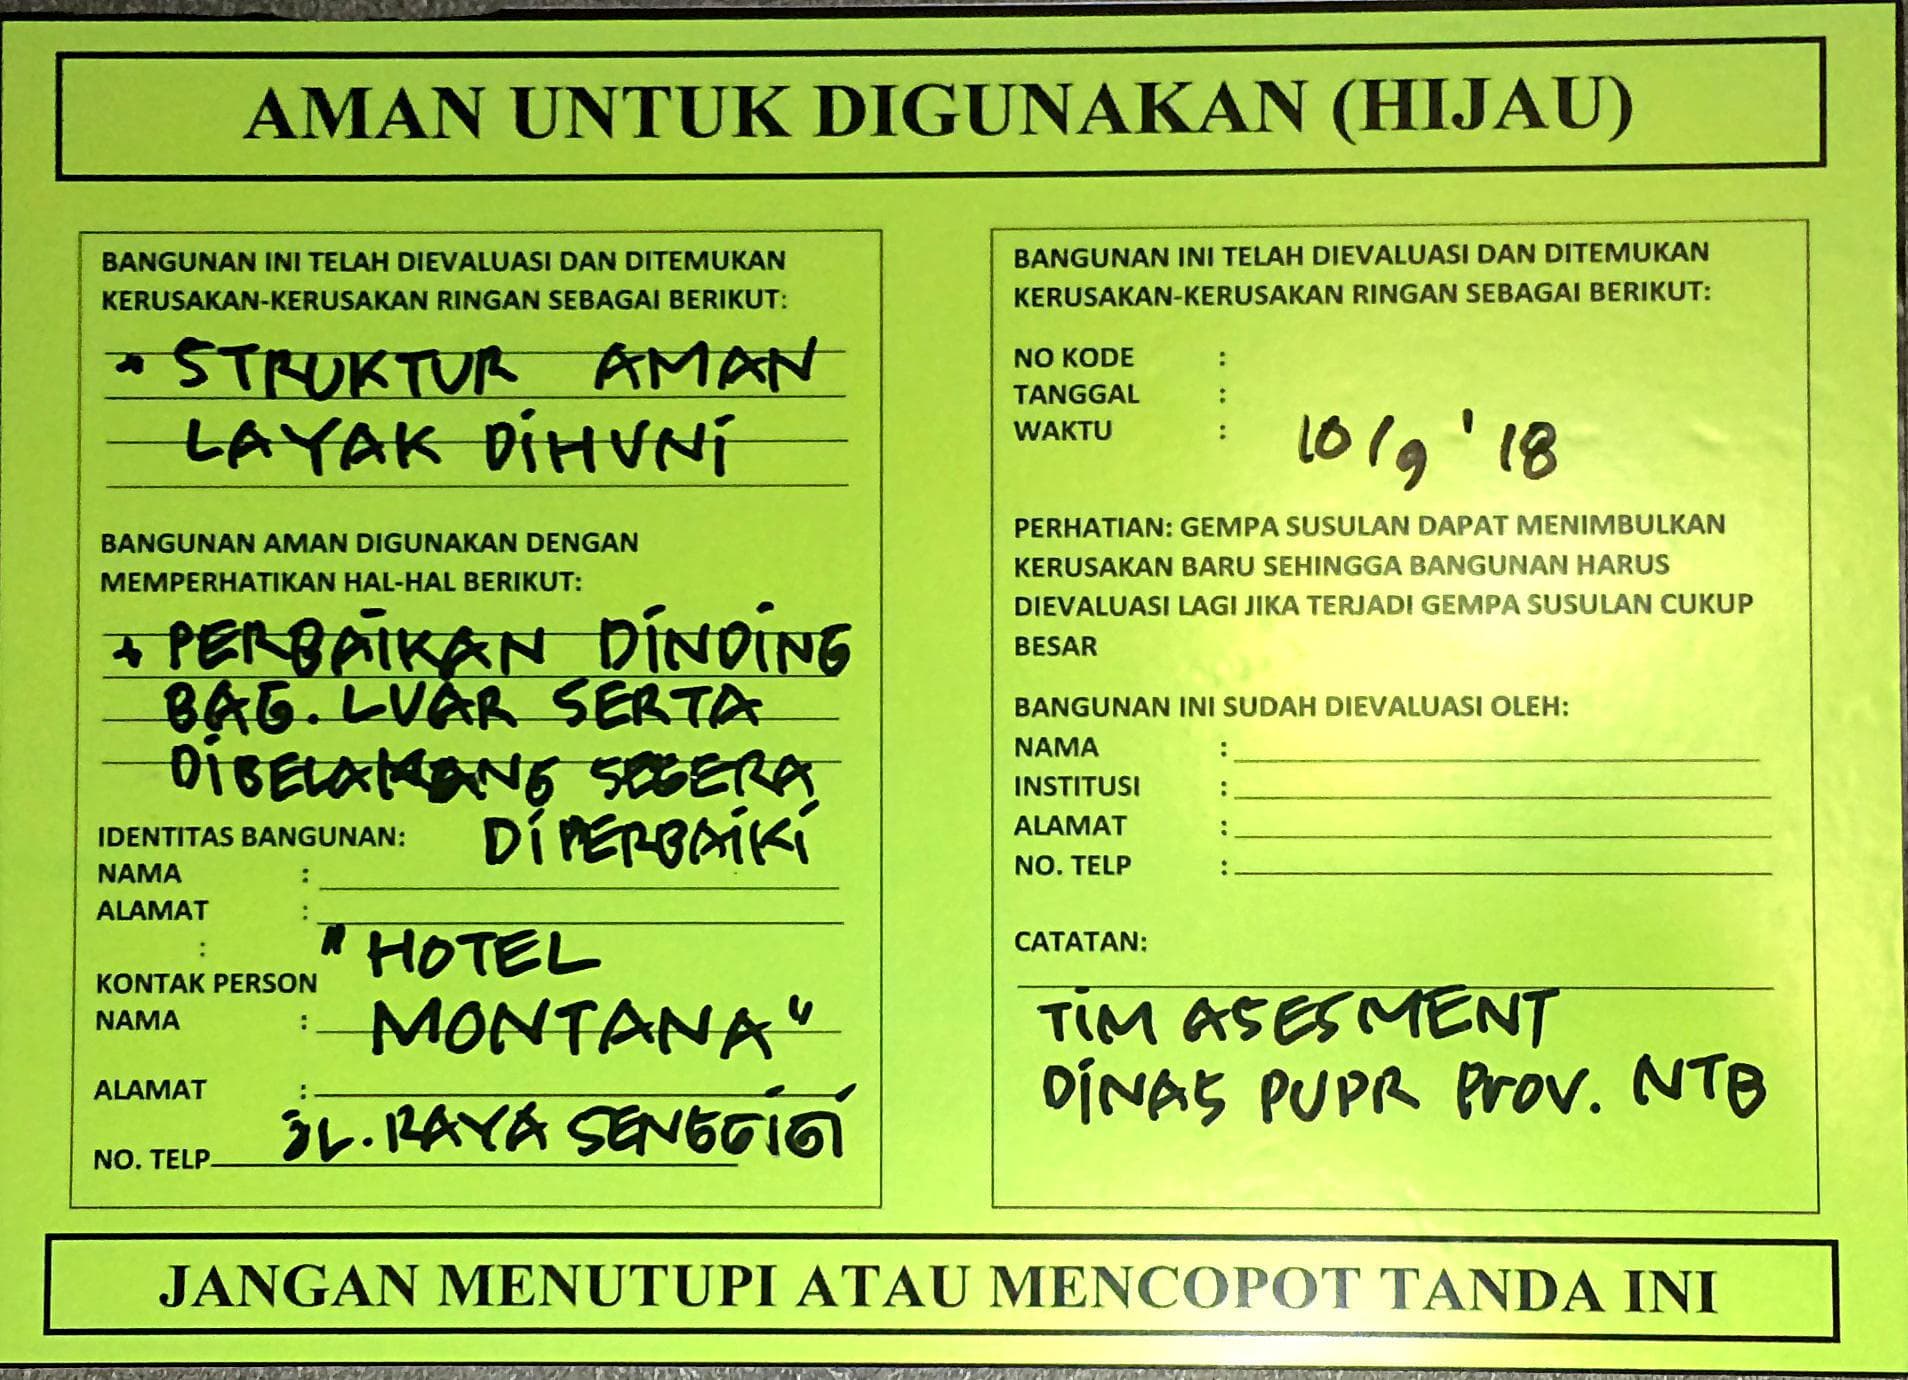 AMAN UNTUK DIGUNAKAN (HIJAU)
BANGUNAN INI TELAH DIEVALUASI DAN DITEMUKAN
KERUSAKAN-KERUSAKAN RINGAN SEBAGAI BERIKUT:
STRUKTUR AMAN
LAYAK DIHUNI
BANGUNAN AMAN DIGUNAKAN DENGAN
MEMPERHATIKAN HAL-HAL BERIKUT:
+ PERBAIKAN DINDING
BAG. LUAR SERTA
DIBELAKANG SEGERA
DIPERBAIKI
IDENTITAS BANGUNAN:
NAMA :
ALAMAT :
:
"HOTEL
KONTAK PERSON
NAMA : MONTANA"
ALAMAT :
JL. RAYA SENGGIGI
NO. TELP
BANGUNAN INI TELAH DIEVALUASI DAN DITEMUKAN
KERUSAKAN-KERUSAKAN RINGAN SEBAGAI BERIKUT:
NO KODE :
TANGGAL :
WAKTU : 10/9 '18
PERHATIAN: GEMPA SUSULAN DAPAT MENIMBULKAN
KERUSAKAN BARU SEHINGGA BANGUNAN HARUS
DIEVALUASI LAGI JIKA TERJADI GEMPA SUSULAN CUKUP
BESAR
BANGUNAN INI SUDAH DIEVALUASI OLEH:
NAMA :
INSTITUSI :
ALAMAT :
NO. TELP :
CATATAN:
TIM ASESMENT
DINAS PUPR PROV. NTB
JANGAN MENUTUPI ATAU MENCOPOT TANDA INI